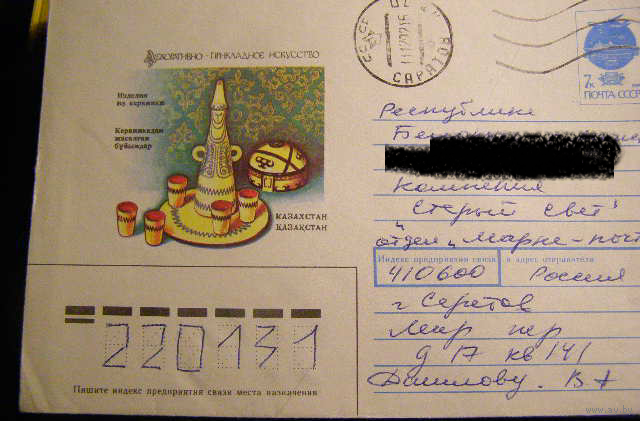 ДЕКОРАТИВНО - ПРИКЛАДНОЕ ИСКУССТВО
Изделия
из керамики
Керамикадан
жасалған
бұйымдар
КАЗАХСТАН
ҚАЗАҚСТАН
САРАТОВ
7к
ПОЧТА СССР
Республика
Компания
"Старый свет"
отдел "Марке-
Индекс предприятия связи и адрес отправителя
410600 Россия
г Саратов
Мир пер
д 17 кв 141
Данилову В А
220131
Пишите индекс предприятия связи места назначения
www.ay.by